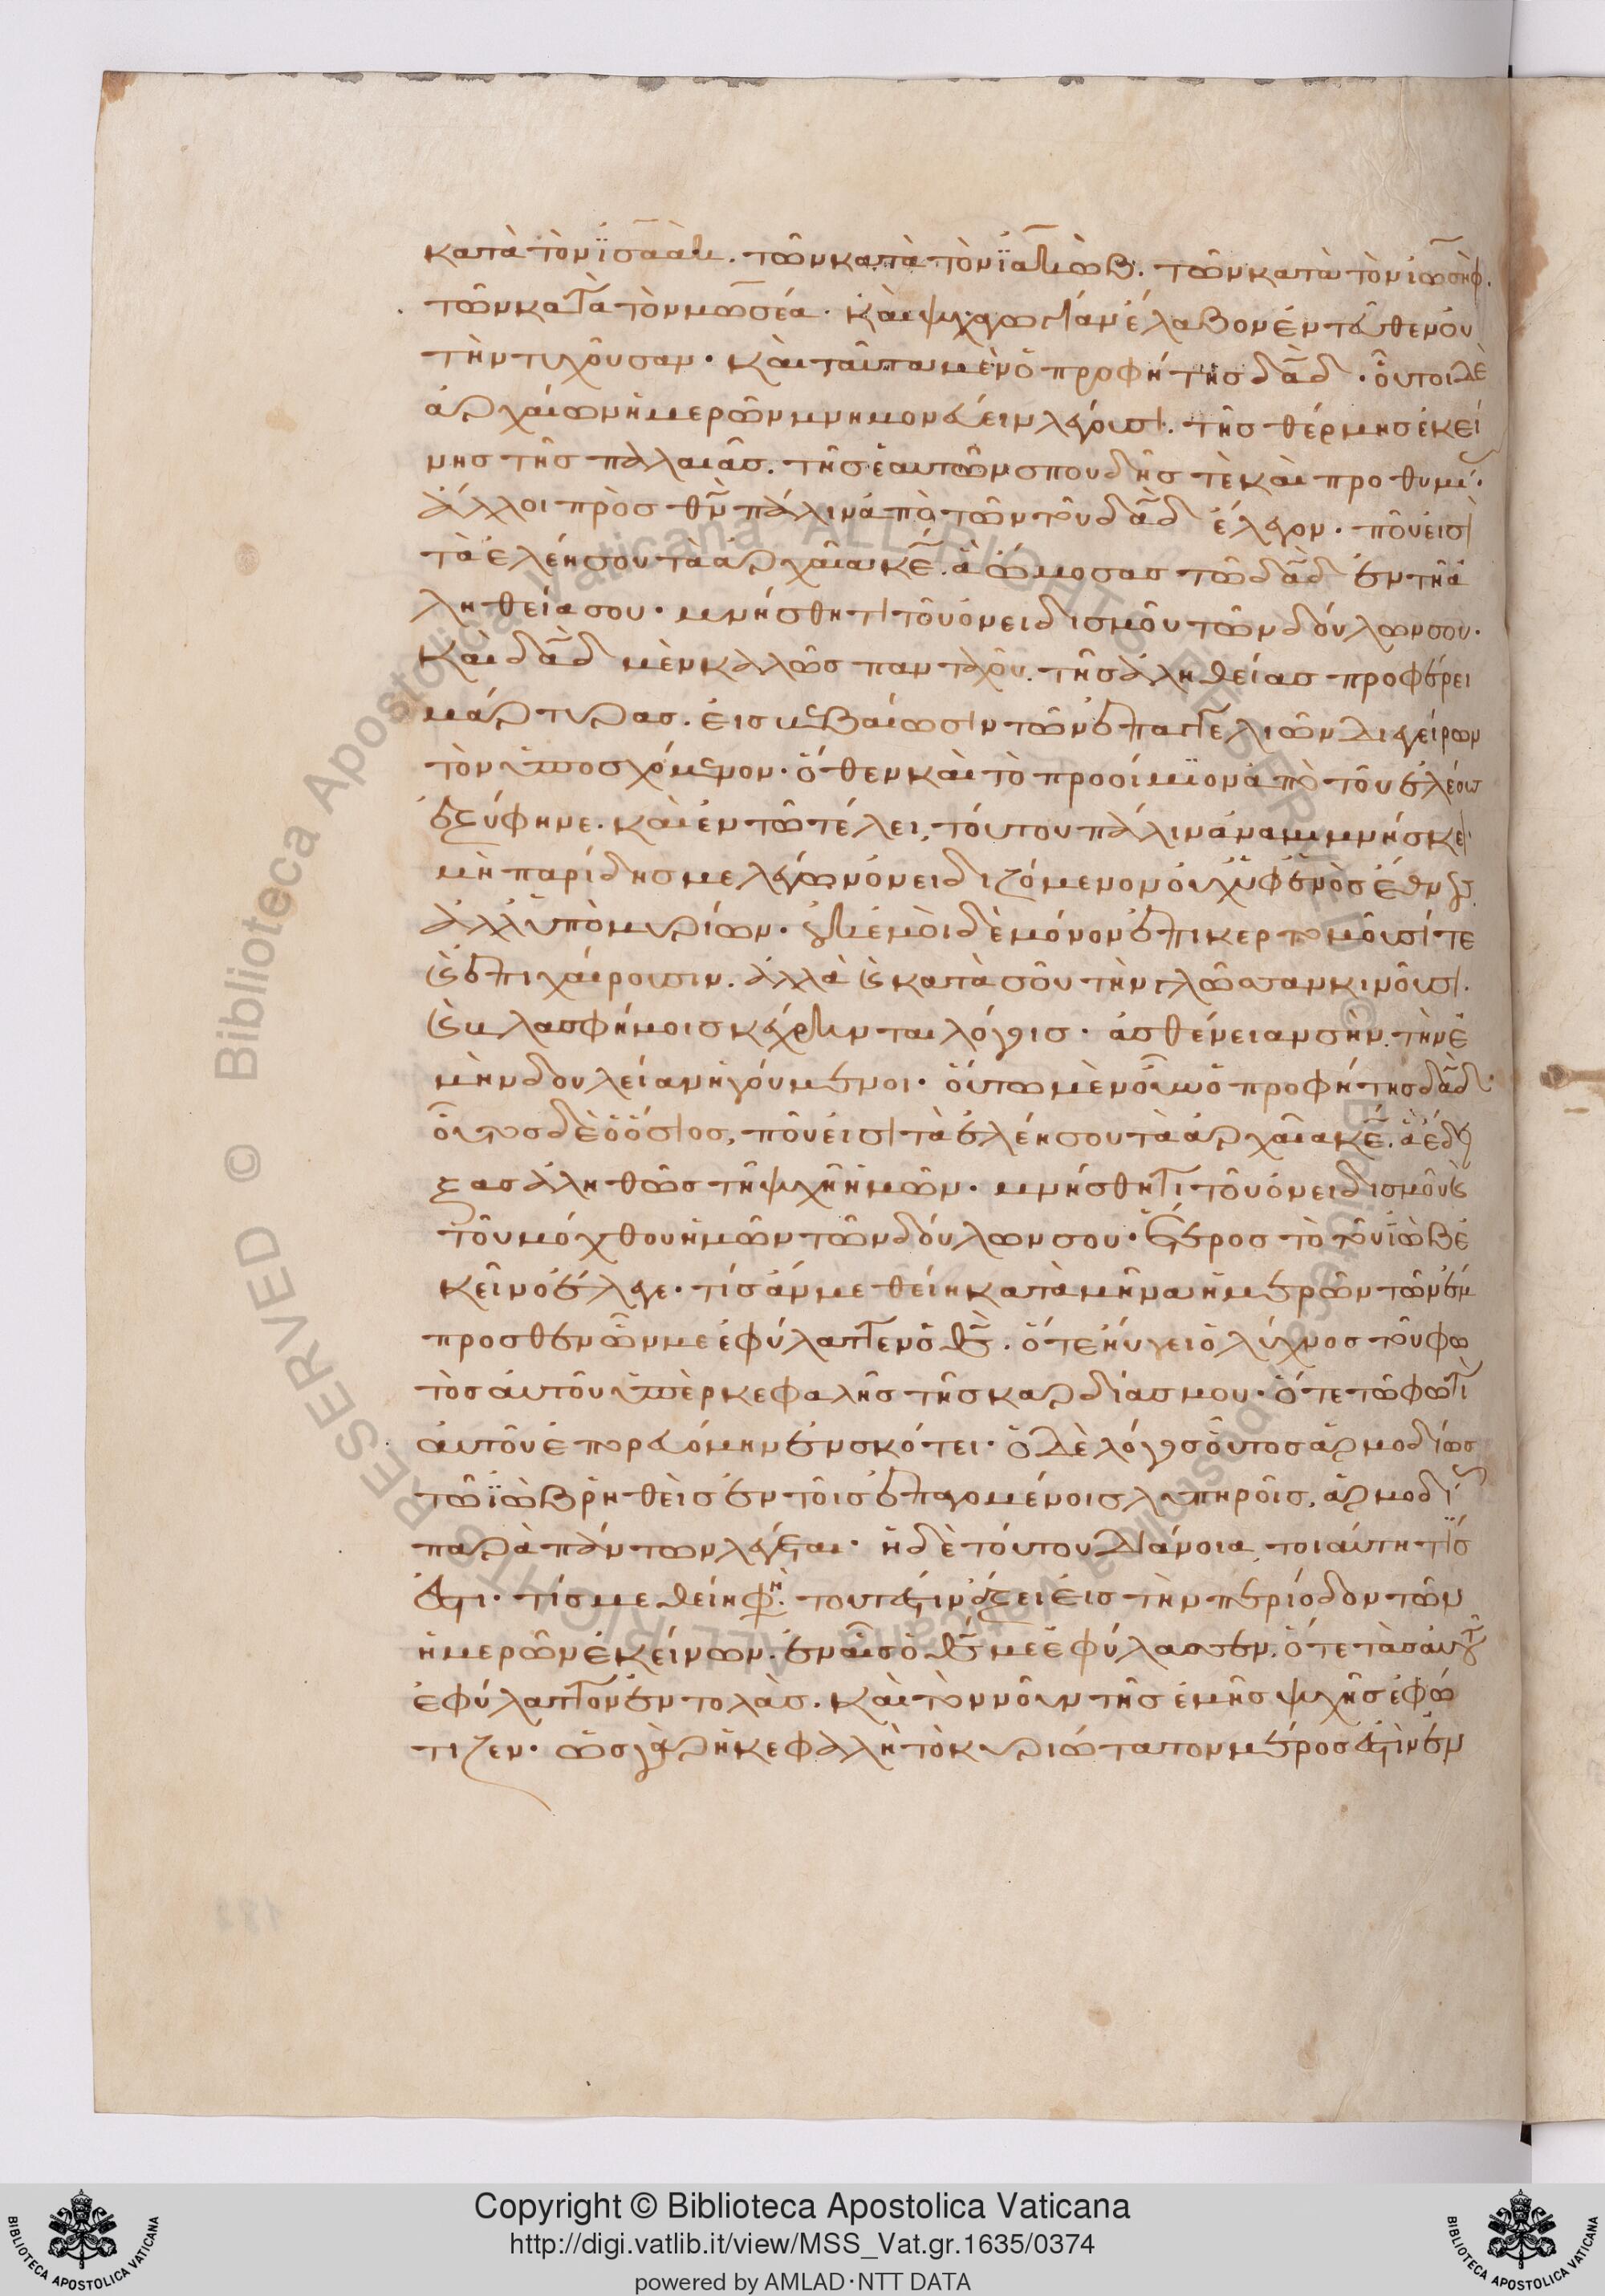 κατὰ τὸν ἰσαὰκ. τῶν κατὰ τὸν ἰακὼβ. τῶν κατὰ τὸν ἰωσὴφ.
τῶν κατὰ τὸν μωσέα. καὶ ψυχαγωγίαν ἔλαβον ἐντεῦθεν οὐ
τὴν τυχοῦσαν. καὶ ταῦτα μὲν ὁ προφήτης δᾱδ. οὗτοι δὲ
ἀρχαίων ἡμερῶν μνημονεύειν λέγουσι. τῆς θέρμης ἐκεί
νης τῆς παλαιᾶς. τῆς ἑαυτῶν σπουδῆς τὲ καὶ προθυμί.
ἄλλοι προσθη̄ν πάλιν ἀπὸ τῶν τοῦ δᾱδ ἔλεγον. ποῦ εἰσὶ
τὰ ἐλέη σου τὰ ἀρχαῖα κ̄ε. ἃ ὤμοσας τῶ δᾱδ ἐν τῆ ἀ
ληθεία σου. μνήσθητι τοῦ ὀνειδισμοῦ τῶν δούλων σου.
καὶ δᾱδ μὲν καλῶς πανταχοῦ. τῆς ἀληθείας προφέρει
μάρτυρας. εἰς βεβαίωσιν τῶν ἐπαγγελιῶν διεγείρων
τὸν ὑποσχόμενον. ὅθεν καὶ τὸ προοίμιον ἀπὸ τοῦ ἐλέους
ἐξύφηνε. καὶ ἐν τῶ τέλει, τούτου πάλιν ἀναμιμνήσκει
μὴ παρίδης με λέγων ὀνειδιζόμενον οὐχ ὑφ ἑνὸς ἔθνους
ἀλλ ὑπὸ μυρίων. οὐκ ἐμοὶ δὲ μόνον ἐπικερτομοῦσί τε
καὶ ἐπιχαίρουσιν. ἀλλὰ καὶ κατὰ σοῦ τὴν γλῶσσαν κινοῦσι.
καὶ βλασφήμοις κέχρηνται λόγοις. ἀσθένειαν σὴν. τὴν ἐ
μὴν δουλείαν ἡγούμενοι. οὕτω μὲν οὖν ὁ προφήτης δᾱδ.
οὗτος δὲ ὁ ὅσιος, ποῦ εἰσὶ τὰ ἐλέη σου τὰ ἀρχαῖα κ̄ε. ἃ ἔδει
ξας ἀληθῶς τῆ ψυχῆ ἡμῶν. μνήσθητι τοῦ ὀνειδισμοῦ καὶ
τοῦ μόχθου ἡμῶν τῶν δούλων σου. ἕτερος τὸ τοῦ ἰὼβ ἐ
κεῖνο ἔλεγε. τίς ἄν με θείη κατὰ μῆνα ἡμερῶν τῶν ἔμ
προσθεν ὧν με ἐφύλαττεν ὁ θ̄ς. ὅτε ηὔγει ὁ λύχνος τοῦ φω
τὸς αὐτοῦ ὑπὲρ κεφαλῆς τῆς καρδίας μου. ὅτε τῶ φωτὶ
αὐτοῦ ἐπορευόμην ἐν σκότει. ὁ δὲ λόγος οὗτος ἁρμοδίως
τῶ ἰὼβ ῥηθεὶς ἐν τοῖς ἐπαγομένοις λυπηροῖς, ἁρμοδί
παρὰ πάντων λέγεται. ἡ δὲ τούτου διάνοια τοιαύτη τίς
ἐστι. τίς με θείη φη. τουτέστιν ἄξει εἰς τὴν περίοδον τῶν
ἡμερῶν ἐκείνων. ἐν αἷς ὁ θ̄ς με ἐφύλασσεν. ὅτε τὰς αὐτοῦ
ἐφύλαττον ἐντολὰς. καὶ τὸν νοῦν τῆς ἐμῆς ψυχῆς ἐφώ
τιζεν. ὡς γὰρ ἡ κεφαλὴ τὸ κυριώτατον μέρος ἐστὶν ἐν
Copyright © Biblioteca Apostolica Vaticana
http://digi.vatlib.it/view/MSS_Vat.gr.1635/0374
powered by AMLAD·NTT DATA